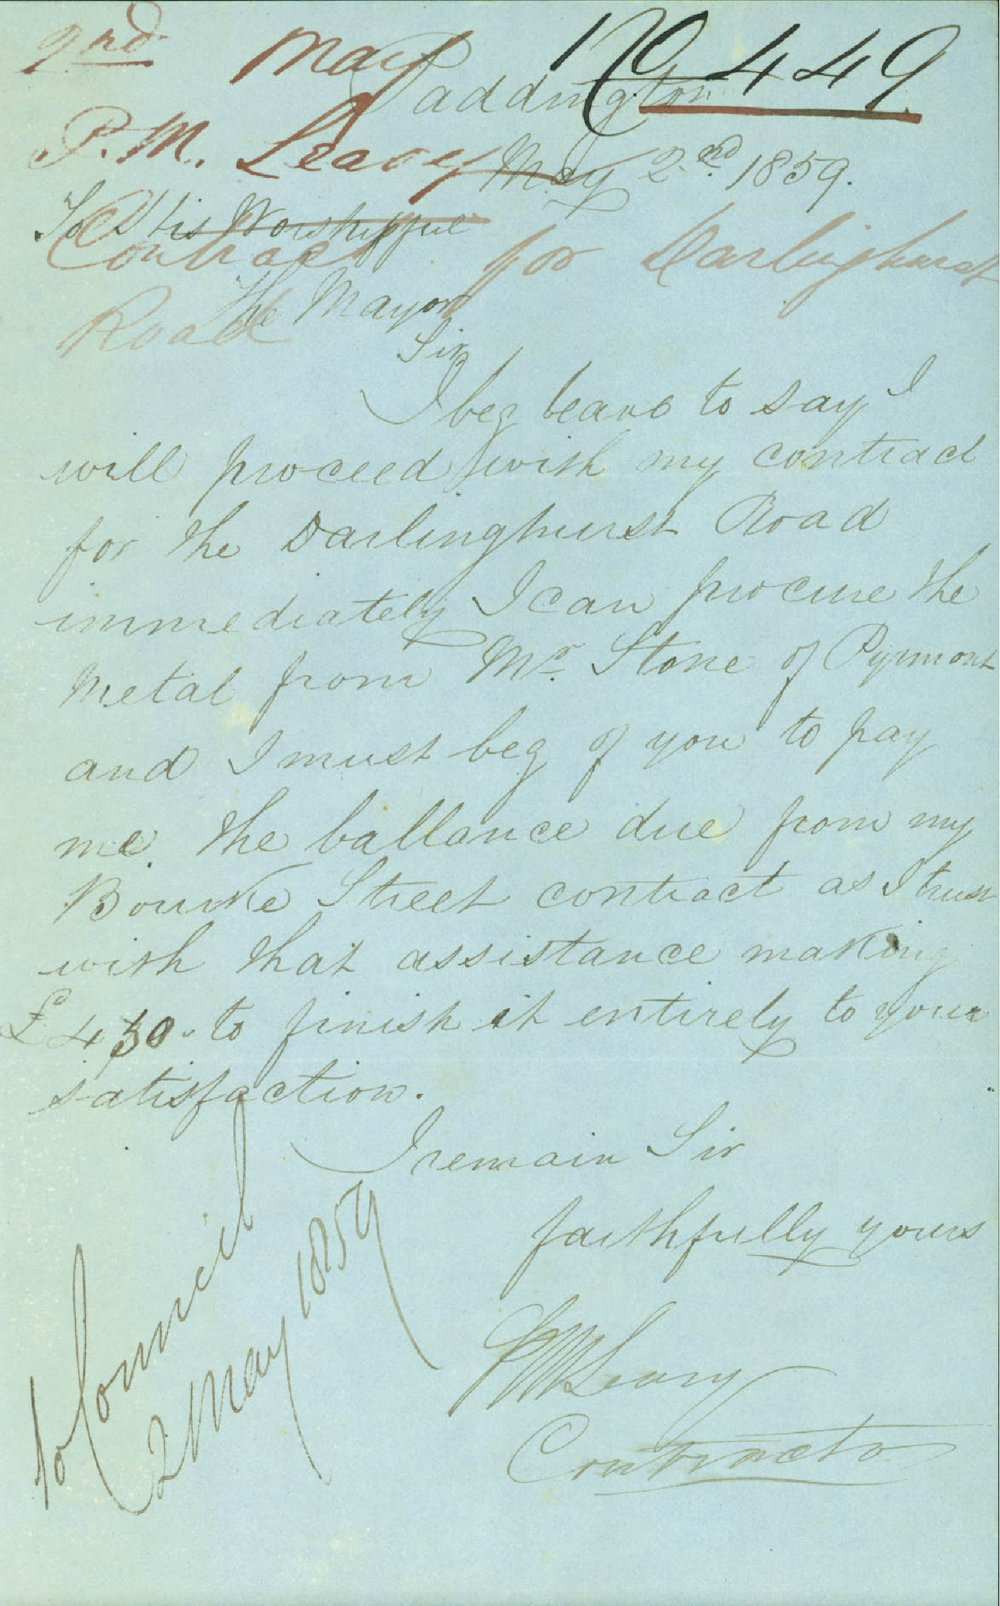 2nd May No 449
Paddington
P. M. Leary
May 2nd 1859.
To His Worshipful
Contract for Darlinghurst
The Mayor
Road
Sir
I beg leave to say I
will proceed with my contract
for the Darlinghurst Road
immediately I can procure the
Metal from Mr. Stone of Pyrmont
and I must beg of you to pay
me the ballance due from my
Bourke Street contract as I trust
with that assistance making
£430 to finish it entirely to your
satisfaction.
I remain Sir
faithfully yours
P M Leary
Contractor
to Council
2 May 1859